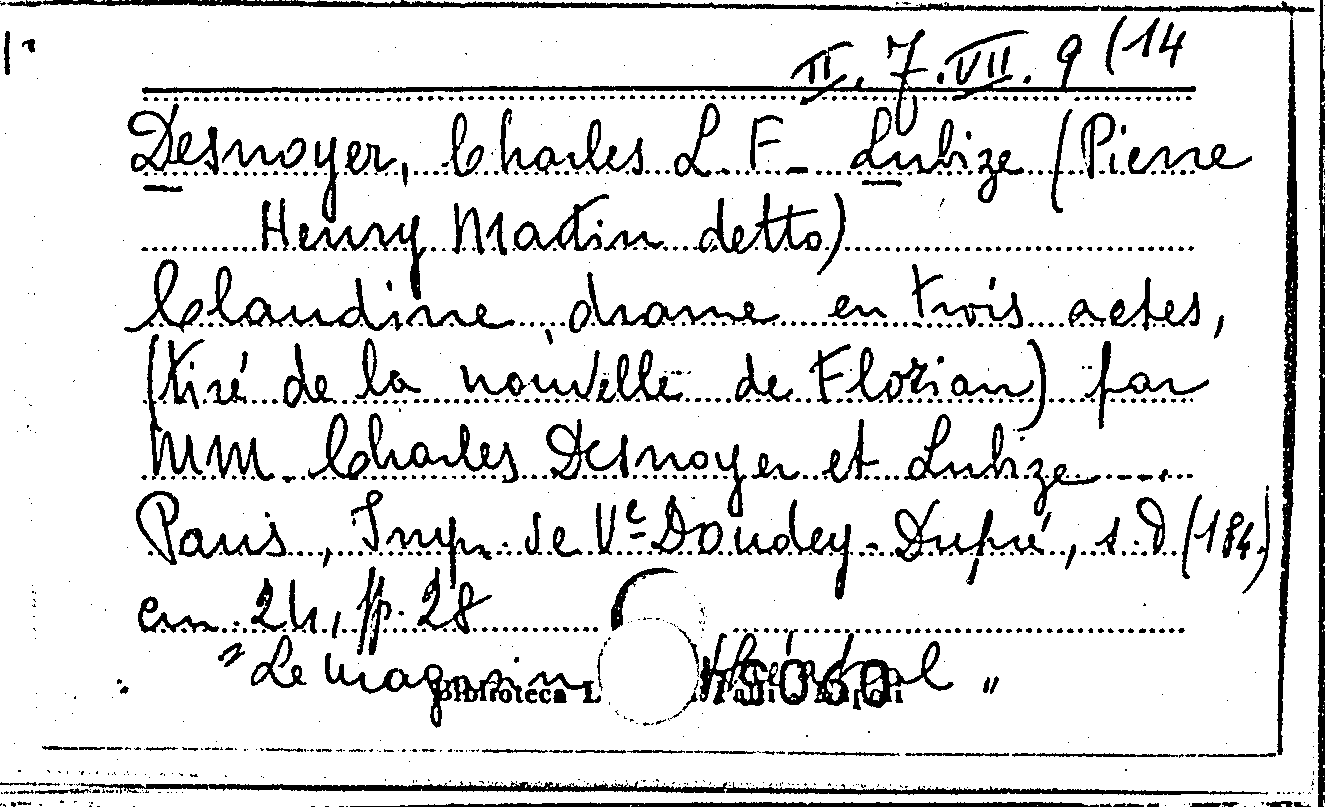 II. 7. VII. 9 (14
Desnoyer, Charles L. F. - Lubize (Pierre
Henry Martin detto)
Claudine, drame en trois actes,
(tiré de la nouvelle de Florian) par
MM. Charles Desnoyer et Lubize ....
Paris, Imp. de Ve Dondey-Dupré, s.d. (184.)
cm. 24, pp. 28
"Le magasin théâtral"
Biblioteca L